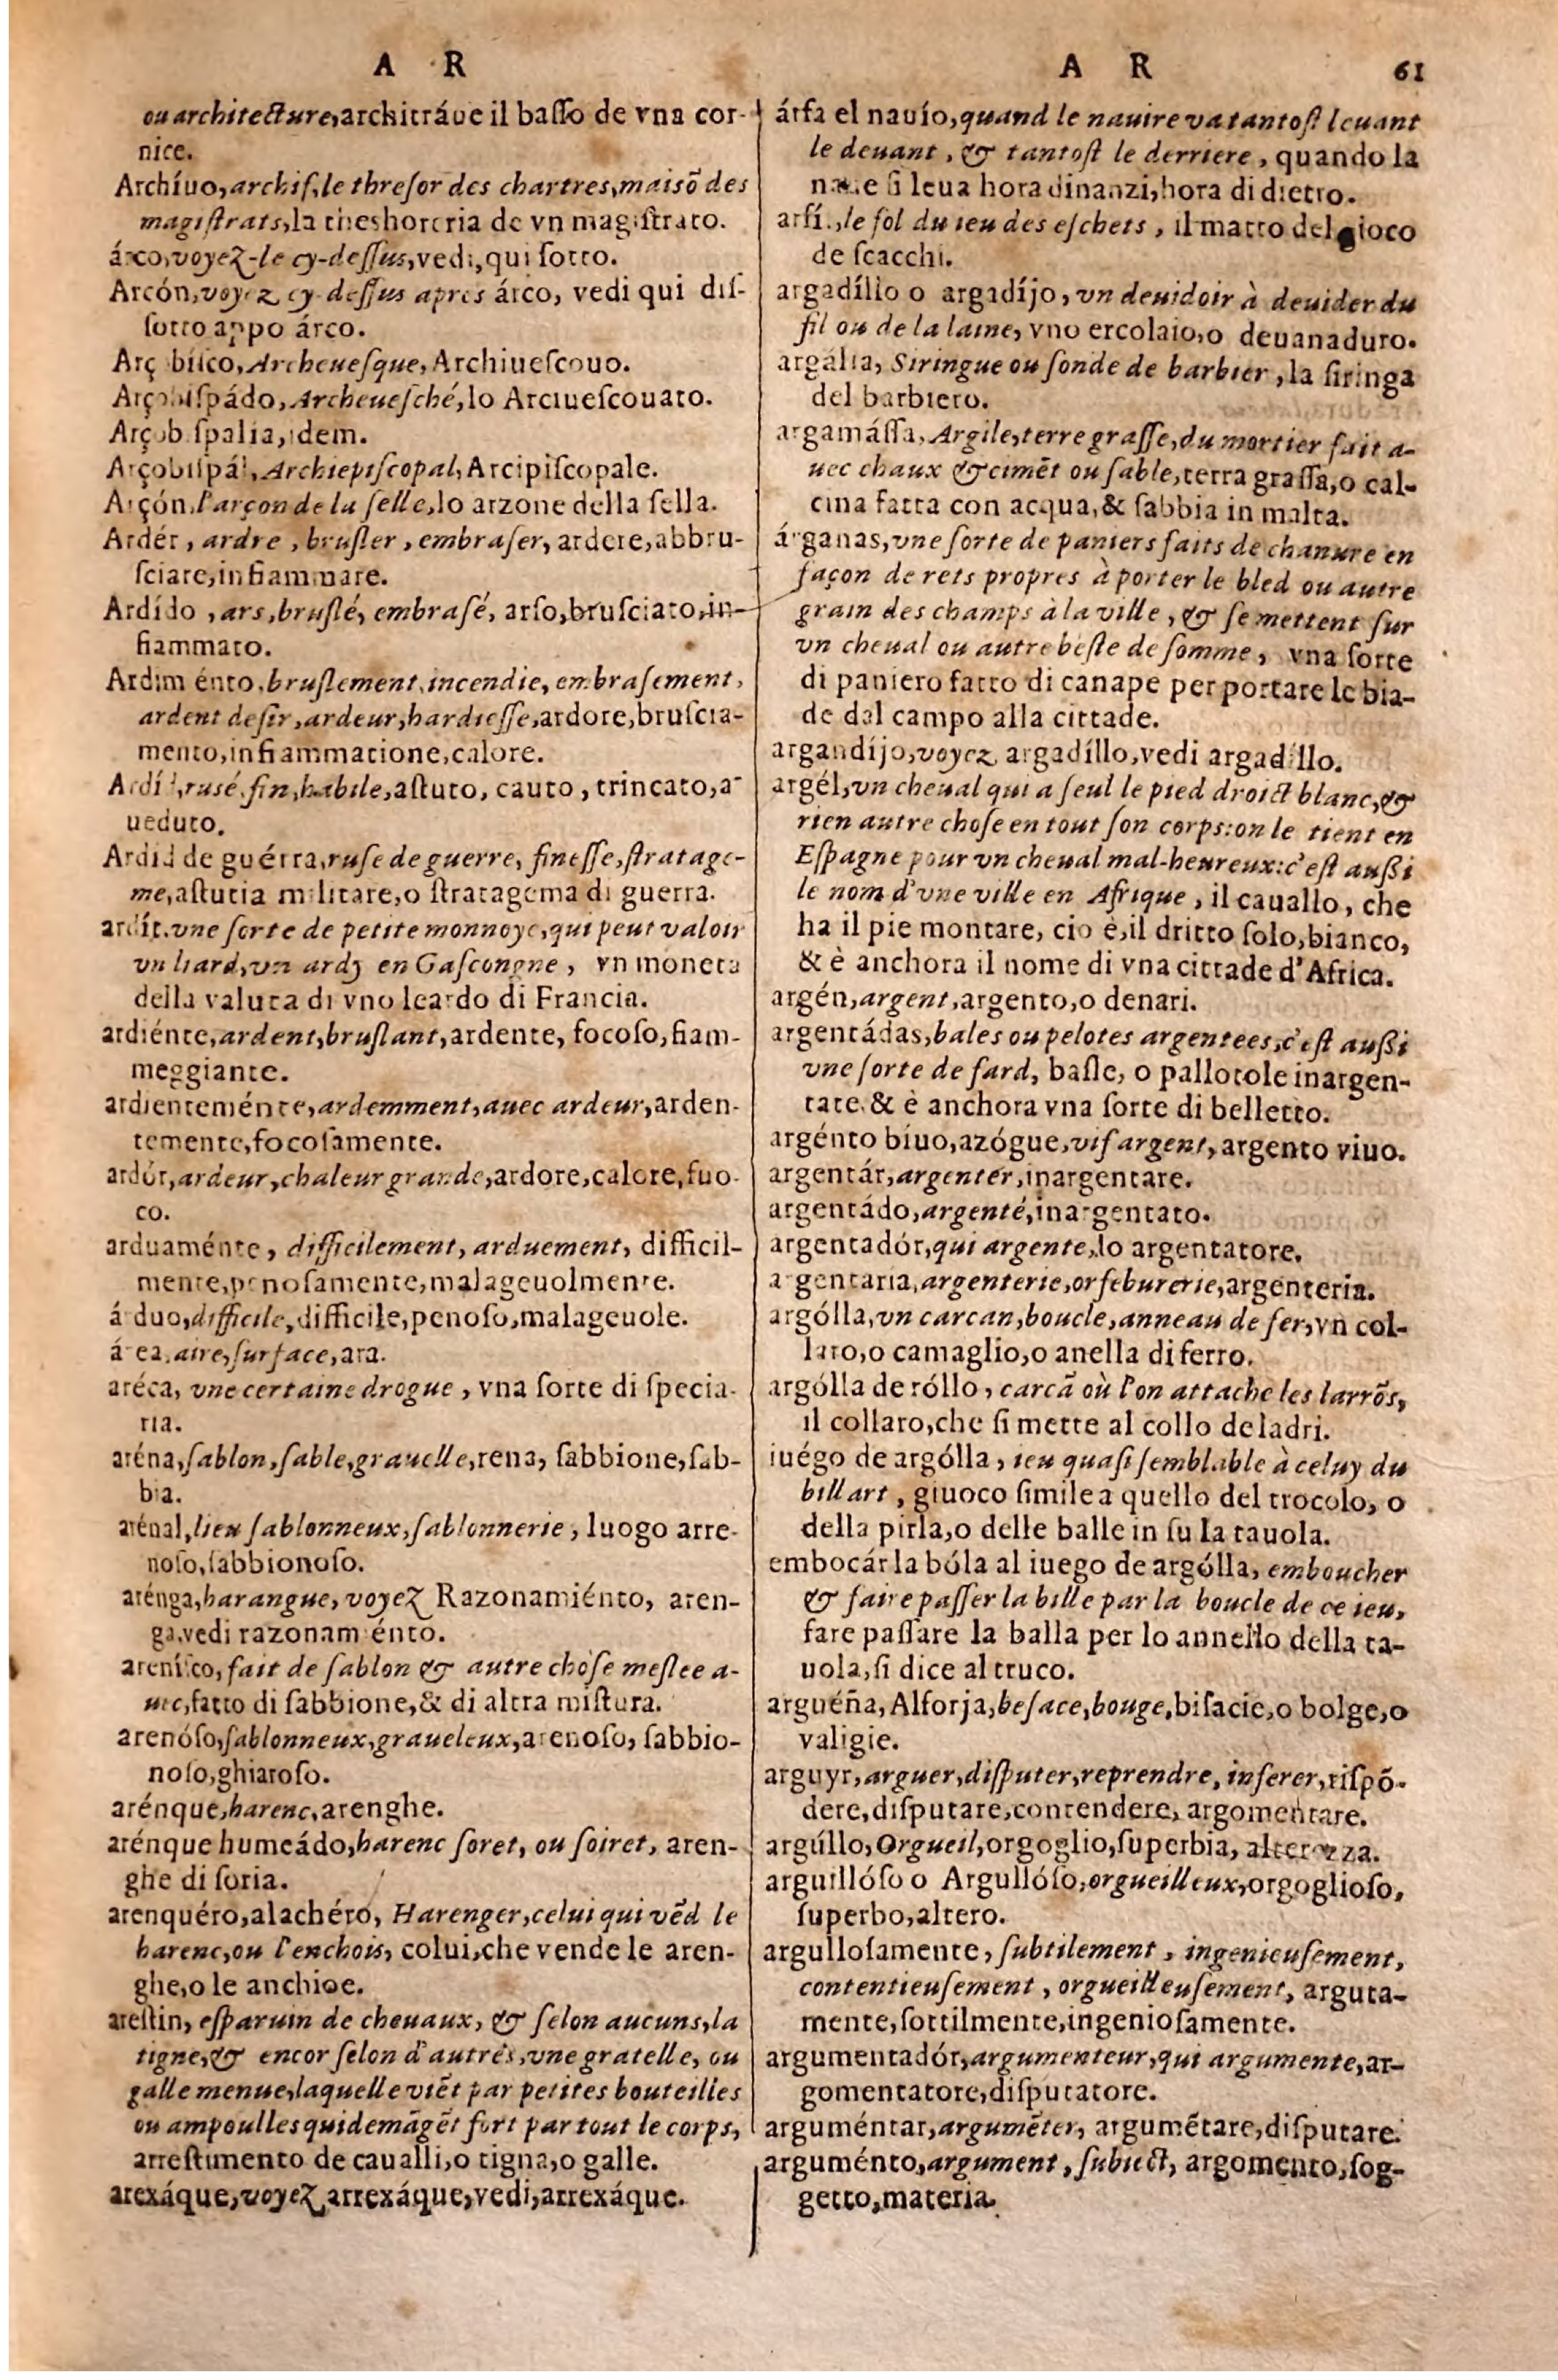 A R
A R 61
ou architecture, architráue il basso de vna cor-
nice.
Archíuo, archif, le thresor des chartres, maisõ des
magistrats, la theshoreria de vn magistrato.
árco, voyez-le cy-dessus, vedi, qui sotto.
Arcón, voyez cy-dessus apres árco, vedi qui dis-
sotto appo árco.
Arçobisco, Archeuesque, Archiuescouo.
Arçobispádo, Archeuesché, lo Arciuescouato.
Arçobispalia, idem.
Arçobispál, Archiepiscopal, Arcipiscopale.
Arçón, l'arçon de la selle, lo arzone della sella.
Ardér, ardre, brusler, embraser, ardere, abbru-
sciare, infiammare.
Ardído, ars, bruslé, embrasé, arso, brusciato, in-
fiammato.
Ardimiénto, bruslement, incendie, embrasement,
ardent desir, ardeur, hardiesse, ardore, bruscia-
mento, infiammatione, calore.
Ardíd, rusé, fin, habile, astuto, cauto, trincato, a-
ueduto.
Ardid de guérra, ruse de guerre, finesse, stratage-
me, astutia militare, o stratagema di guerra.
ardít, vne sorte de petite monnoye, qui peut valoir
vn liard, vn ardy en Gascongne, vn moneta
della valuta di vno leardo di Francia.
ardiénte, ardent, bruslant, ardente, focoso, fiam-
meggiante.
ardienteménte, ardemment, auec ardeur, arden-
temente, focosamente.
ardór, ardeur, chaleur grande, ardore, calore, fuo-
co.
arduaménte, difficilement, arduement, difficil-
mente, penosamente, malageuolmente.
árduo, difficile, difficile, penoso, malageuole.
área, aire, surface, ara.
aréca, vne certaine drogue, vna sorte di specia-
ria.
aréna, sablon, sable, grauelle, rena, sabbione, sab-
bia.
arénal, lieu sablonneux, sablonnerie, luogo arre-
noso, sabbionoso.
arénga, harangue, voyez Razonamiénto, aren-
ga, vedi razonamiénto.
arenísco, fait de sablon & autre chose meslee a-
uec, fatto di sabbione, & di altra mistura.
arenóso, sablonneux, graueleux, arenoso, sabbio-
noso, ghiaroso.
arénque, harenc, arenghe.
arénque humeádo, harenc soret, ou soiret, aren-
ghe di soria.
arenquéro, alachéro, Harenger, celui qui vẽd le
harenc, ou l'enchois, colui, che vende le aren-
ghe, o le anchioe.
arestin, esparuin de cheuaux, & selon aucuns, la
tigne, & encor selon d'autres, vne gratelle, ou
galle menue, laquelle viẽt par petites bouteilles
ou ampoulles qui demãgẽt fort par tout le corps,
arrestimento de caualli, o tigna, o galle.
arexáque, voyez arrexáque, vedi, arrexáque.
árfa el nauío, quand le nauire va tantost leuant
le deuant, & tantost le derriere, quando la
naue si leua hora dinanzi, hora di dietro.
arfíl, le fol du ieu des eschets, il matto del gioco
de scacchi.
argadíllo o argadíjo, vn deuidoir à deuider du
fil ou de la laine, vno ercolaio, o deuanaduro.
argália, Siringue ou sonde de barbier, la siringa
del barbiero.
argamássa, Argile, terre grasse, du mortier fait a-
uec chaux & cimẽt ou sable, terra grassa, o cal-
cina fatta con acqua, & sabbia in malta.
árganas, vne sorte de paniers faits de chanure en
façon de rets propres à porter le bled ou autre
grain des champs à la ville, & se mettent sur
vn cheual ou autre beste de somme, vna sorte
di paniero fatto di canape per portare le bia-
de dal campo alla cittade.
argandíjo, voyez argadíllo, vedi argadíllo.
argél, vn cheual qui a seul le pied droict blanc, &
rien autre chose en tout son corps: on le tient en
Espagne pour vn cheual mal-heureux: c'est aussi
le nom d'vne ville en Afrique, il cauallo, che
ha il pie montare, cio è, il dritto solo, bianco,
& è anchora il nome di vna cittade d'Africa.
argén, argent, argento, o denari.
argentádas, bales ou pelotes argentees, c'est aussi
vne sorte de fard, basle, o pallotole inargen-
tate, & è anchora vna sorte di belletto.
argénto bíuo, azógue, vif argent, argento viuo.
argentár, argenter, inargentare.
argentádo, argenté, inargentato.
argentadór, qui argente, lo argentatore.
argentaria, argenterie, orfeburerie, argenteria.
argólla, vn carcan, boucle, anneau de fer, vn col-
laro, o camaglio, o anella di ferro.
argólla de róllo, carcã où l'on attache les larrõs,
il collaro, che si mette al collo de ladri.
iuégo de argólla, ieu quasi semblable à celuy du
billart, giuoco simile a quello del trocolo, o
della pirla, o delle balle in su la tauola.
embocár la bóla al iuego de argólla, emboucher
& faire passer la bille par la boucle de ce ieu,
fare passare la balla per lo annello della ta-
uola, si dice al truco.
arguéña, Alforja, besace, bouge, bisacie, o bolge, o
valigie.
arguyr, arguer, disputer, reprendre, inferer, rispõ-
dere, disputare, contendere, argomentare.
argúllo, Orgueil, orgoglio, superbia, alterezza.
arguillóso o Argullóso, orgueilleux, orgoglioso,
superbo, altero.
argullosamente, subtilement, ingenieusement,
contentieusement, orgueilleusement, arguta-
mente, sottilmente, ingeniosamente.
argumentadór, argumenteur, qui argumente, ar-
gomentatore, disputatore.
arguméntar, argumẽter, argumẽtare, disputare.
arguménto, argument, subiect, argomento, sog-
getto, materia.